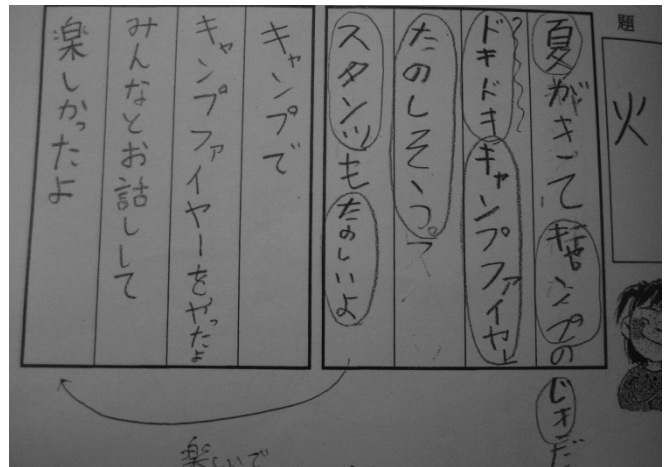 題
火
夏がきて キャンプの じきだ
ドキドキキャンプファイヤー
たのしそう。
スタンツもたのしいよ
キャンプで
キャンプファイヤーをやったよ
みんなとお話しして
楽しかったよ
楽しいで